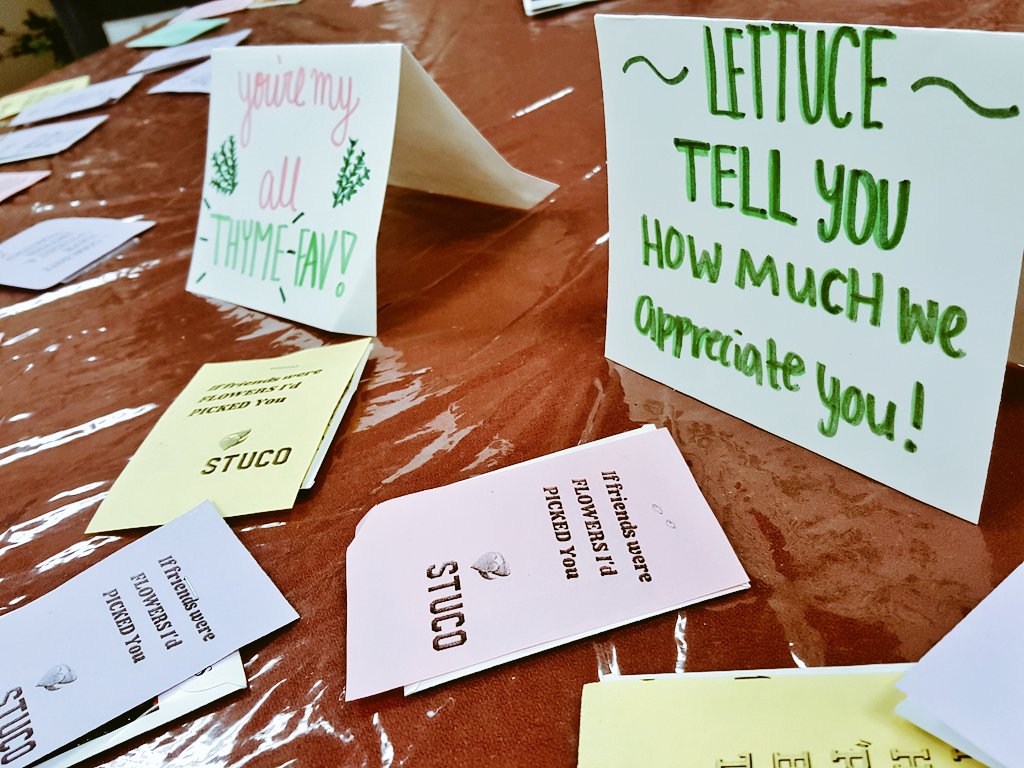 you're my
all
THYME-FAV!
LETTUCE
TELL YOU
HOW MUCH WE
appreciate you!
If friends were
FLOWERS I'd
PICKED You
STUCO
If friends were
FLOWERS I'd
PICKED You
STUCO
If friends were
FLOWERS I'd
PICKED You
STUCO